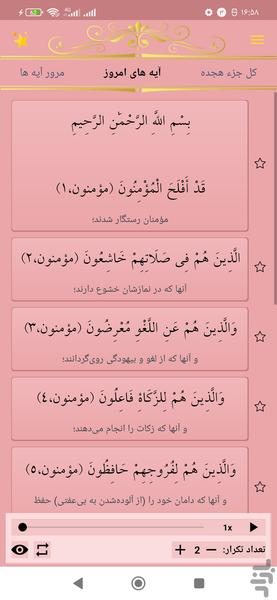 ۱۶:۵۸
کل جزء هجده
آیه های امروز
مرور آیه ها
بِسْمِ اللَّهِ الرَّحْمَٰنِ الرَّحِيمِ
قَدْ أَفْلَحَ الْمُؤْمِنُونَ (مؤمنون،۱)
مؤمنان رستگار شدند؛
الَّذِينَ هُمْ فِي صَلَاتِهِمْ خَاشِعُونَ (مؤمنون،۲)
آنها که در نمازشان خشوع دارند؛
وَالَّذِينَ هُمْ عَنِ اللَّغْوِ مُعْرِضُونَ (مؤمنون،۳)
و آنها که از لغو و بیهودگی روی‌گردانند؛
وَالَّذِينَ هُمْ لِلزَّكَاةِ فَاعِلُونَ (مؤمنون،۴)
و آنها که زکات را انجام می‌دهند؛
وَالَّذِينَ هُمْ لِفُرُوجِهِمْ حَافِظُونَ (مؤمنون،۵)
و آنها که دامان خود را (از آلوده‌شدن به بی‌عفتی) حفظ
1x
تعداد تکرار: − 2 +
بازار